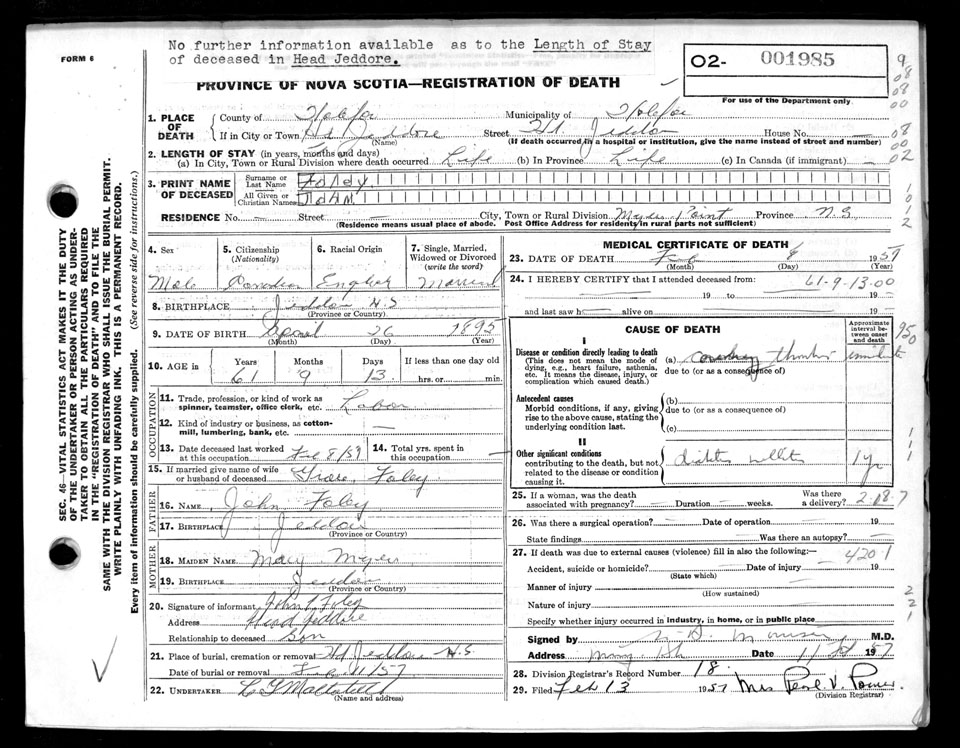 No further information available as to the Length of Stay
of deceased in Head Jeddore.
FORM 6
O2- 001985
For use of the Department only
PROVINCE OF NOVA SCOTIA—REGISTRATION OF DEATH
SEC. 46—VITAL STATISTICS ACT MAKES IT THE DUTY
OF THE UNDERTAKER OR PERSON ACTING AS UNDER-
TAKER TO OBTAIN ALL THE PARTICULARS REQUIRED
IN THE "REGISTRATION OF DEATH" AND TO FILE THE
SAME WITH THE DIVISION REGISTRAR WHO SHALL ISSUE THE BURIAL PERMIT.
WRITE PLAINLY WITH UNFADING INK. THIS IS A PERMANENT RECORD.
Every item of information should be carefully supplied. (See reverse side for instructions.)
1. PLACE OF DEATH
County of Halifax Municipality of Halifax
If in City or Town Hd Jeddore Street Hd. Jeddore House No. —
(Name) (If death occurred in a hospital or institution, give the name instead of street and number)
2. LENGTH OF STAY (in years, months and days)
(a) In City, Town or Rural Division where death occurred Life (b) In Province Life (c) In Canada (if immigrant) —
3. PRINT NAME OF DECEASED
Surname or Last Name Foley
All Given or Christian Names
RESIDENCE No. — Street — City, Town or Rural Division Myers Point Province N.S
(Residence means usual place of abode. Post Office Address for residents in rural parts not sufficient)
4. Sex Male
5. Citizenship (Nationality) Canadian
6. Racial Origin English
7. Single, Married, Widowed or Divorced (write the word) Married
8. BIRTHPLACE Jeddore N.S
(Province or Country)
9. DATE OF BIRTH April 26 1895
(Month) (Day) (Year)
10. AGE in Years 61 Months 9 Days 13 If less than one day old hrs. or min.
OCCUPATION
11. Trade, profession, or kind of work as spinner, teamster, office clerk, etc. Labor
12. Kind of industry or business, as cotton-mill, lumbering, bank, etc. —
13. Date deceased last worked at this occupation Feb 8/57
14. Total yrs. spent in this occupation —
15. If married give name of wife or husband of deceased Foley
FATHER
16. NAME John Foley
17. BIRTHPLACE Jeddore
(Province or Country)
MOTHER
18. MAIDEN NAME Mary Myers
19. BIRTHPLACE Jeddore
(Province or Country)
20. Signature of informant John Foley
Address Head Jeddore
Relationship to deceased Son
21. Place of burial, cremation or removal Hd Jeddore N.S.
Date of burial or removal Feb 11/57
22. UNDERTAKER
(Name and address)
MEDICAL CERTIFICATE OF DEATH
23. DATE OF DEATH Feb 8 1957
(Month) (Day) (Year)
24. I HEREBY CERTIFY that I attended deceased from: 61-9-13-00
19 to 19
and last saw h alive on 19
CAUSE OF DEATH
Approximate interval between onset and death
I
Disease or condition directly leading to death
(This does not mean the mode of dying, e.g., heart failure, asthenia, etc. It means the disease, injury, or complication which caused death.)
(a) coronary
due to (or as a consequence of)
Antecedent causes
Morbid conditions, if any, giving rise to the above cause, stating the underlying condition last.
(b)
due to (or as a consequence of)
(c)
II
Other significant conditions
contributing to the death, but not related to the disease or condition causing it.
1 yr
25. If a woman, was the death associated with pregnancy? Duration weeks. Was there a delivery? 2-18-7
26. Was there a surgical operation? Date of operation 19
State findings Was there an autopsy?
27. If death was due to external causes (violence) fill in also the following:— 4201
Accident, suicide or homicide? Date of injury 19
(State which)
Manner of injury
(How sustained)
Nature of injury
Specify whether injury occurred in industry, in home, or in public place
Signed by M.D.
Address Date 11 Feb 1957
28. Division Registrar's Record Number 18.
29. Filed Feb 13 1957 Mrs Pearl V. Power.
(Division Registrar)